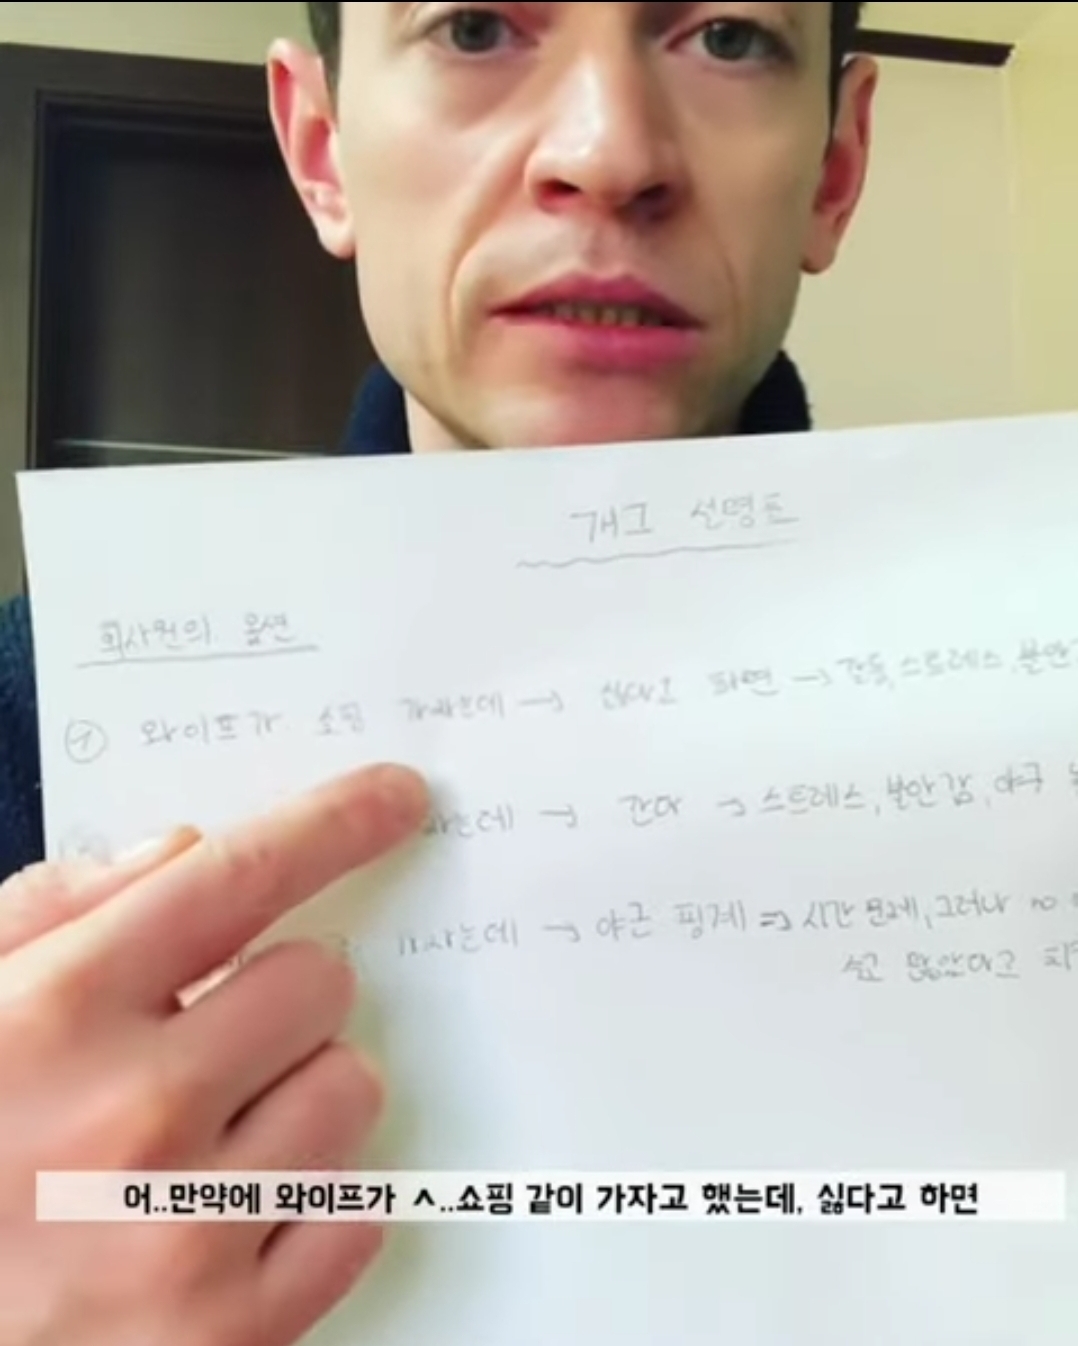 개그 설명표
회사원의 옵션
① 와이프가 쇼핑 가자는데 → 싫다고 하면 → 갈등, 스트레스, 불안
자는데 → 간다 → 스트레스, 불안감, 야구
가자는데 → 야근 핑계 ⇒ 시간 문제, 그러나 no
쇼핑 같이 가자고 했는데, 싫다고 하면